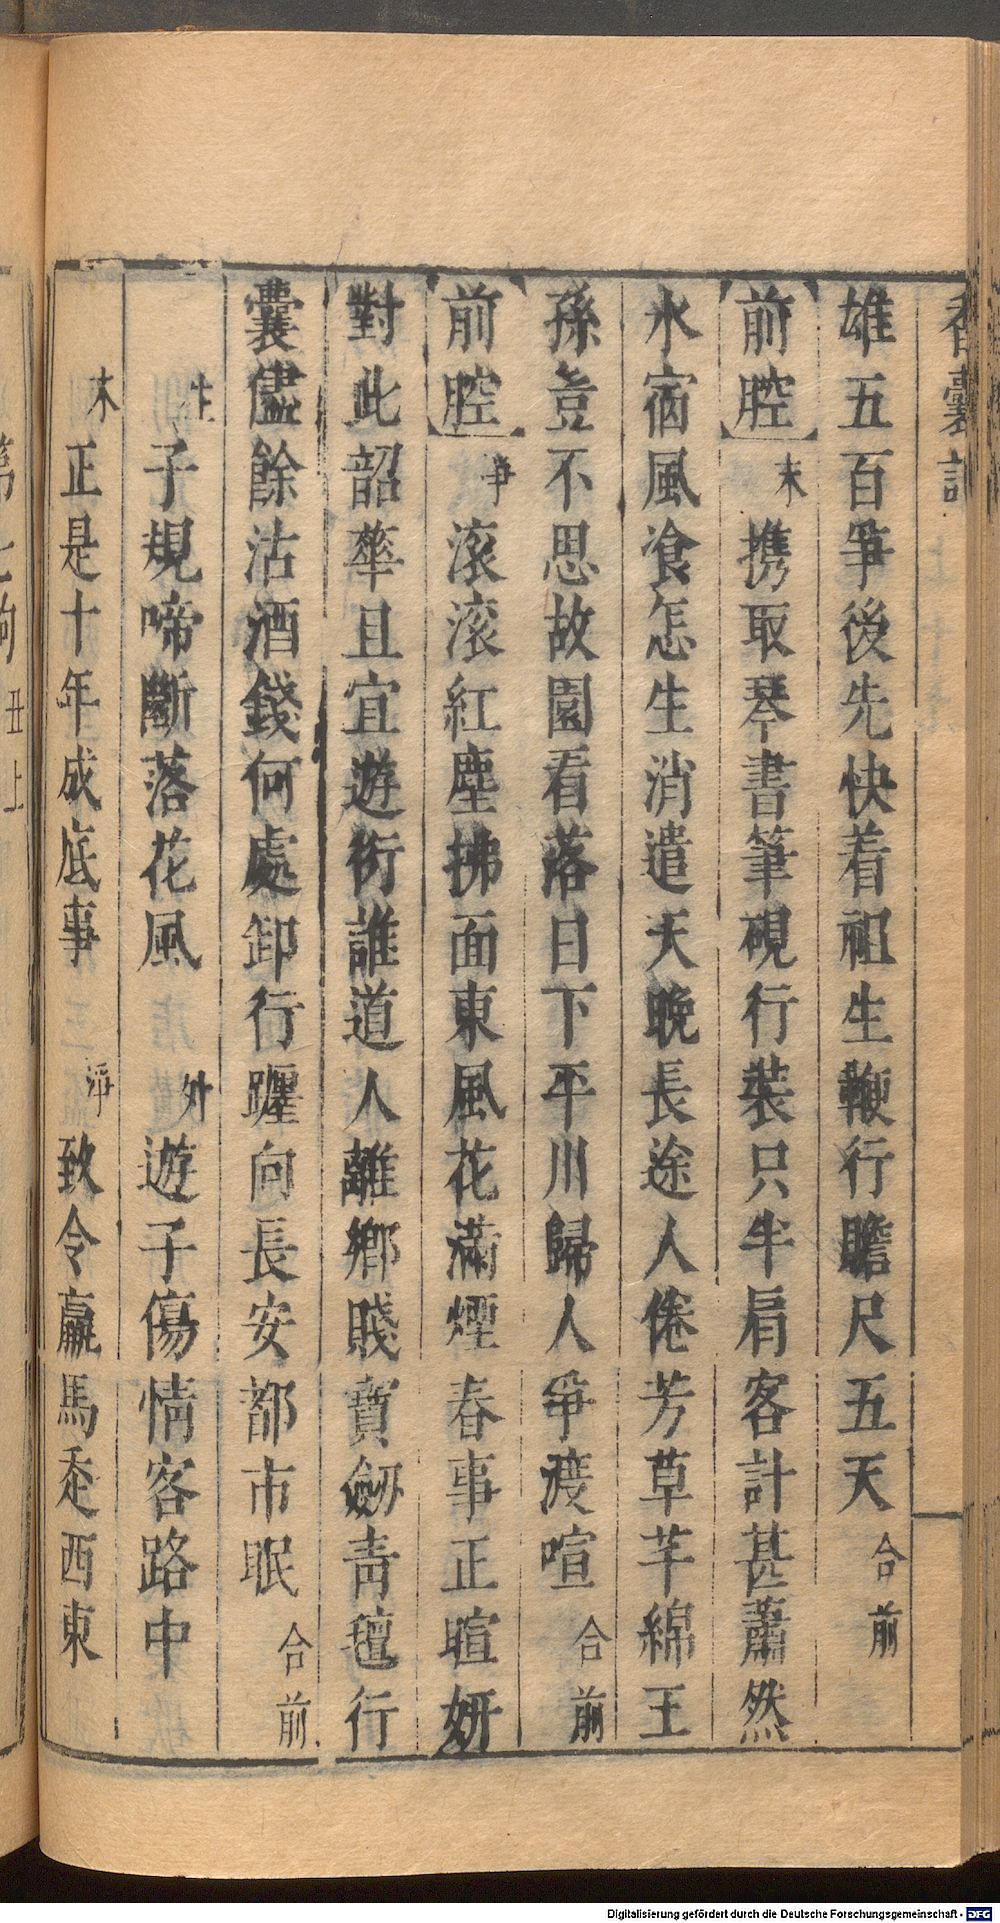 香囊記
雄五百爭後先快着祖生鞭行瞻尺五天合前
前腔末携取琴書筆硯行裝只半肩客計甚蕭然
水宿風飡怎生消遣天晚長途人倦芳草芊綿王
孫豈不思故園看落日下平川歸人爭渡喧合前
前腔淨滚滚紅塵拂面東風花滿煙春事正暄妍
對此韶華且宜遊衒誰道人離鄉賤賣劒青氊行
囊儘餘沽酒錢何處卸行躔向長安都市眠合前
生子規啼斷落花風外遊子傷情客路中
末正是十年成底事淨致令羸馬走西東
丑上
Digitalisierung gefördert durch die Deutsche Forschungsgemeinschaft - DFG